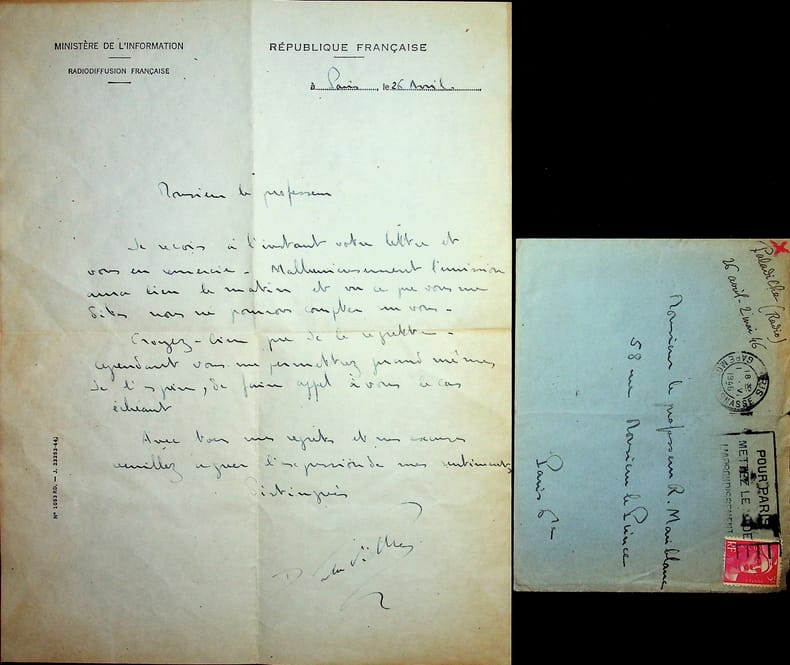 MINISTÈRE DE L'INFORMATION
RADIODIFFUSION FRANÇAISE
RÉPUBLIQUE FRANÇAISE
à Paris, le 26 Avril
Monsieur le professeur
Je reçois à l'instant votre lettre et
vous en remercie - Malheureusement l'émission
aura lieu le matin et vu ce que vous me
dites nous ne pouvons compter sur vous -
Croyez-bien que je le regrette -
Cependant vous me permettrez quand même,
je l'espère, de faire appel à vous le cas
échéant
Avec tous mes regrets et mes excuses
veuillez agréer l'expression de mes sentiments
distingués
Paladilhe
Paladilhe (Radio)
26 avril - 2 mai 46
Monsieur le professeur R.
58 rue Monsieur le Prince
Paris 6e
18 30
1946
POUR PARIS
METTEZ LE
D'ARRONDISSEMENT
RF